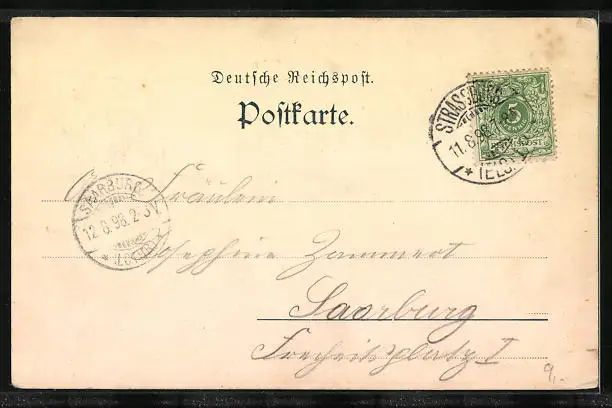 Deutsche Reichspost.
Postkarte.
STRASSBURG
11.8.98
(ELS.)
5
REICHSPOST
SAARBURG
12.8.98. 2-3 V
(LOTHR)
Fräulein
Josephine Zammert
Saarburg
Freiheitsplatz I
9,-